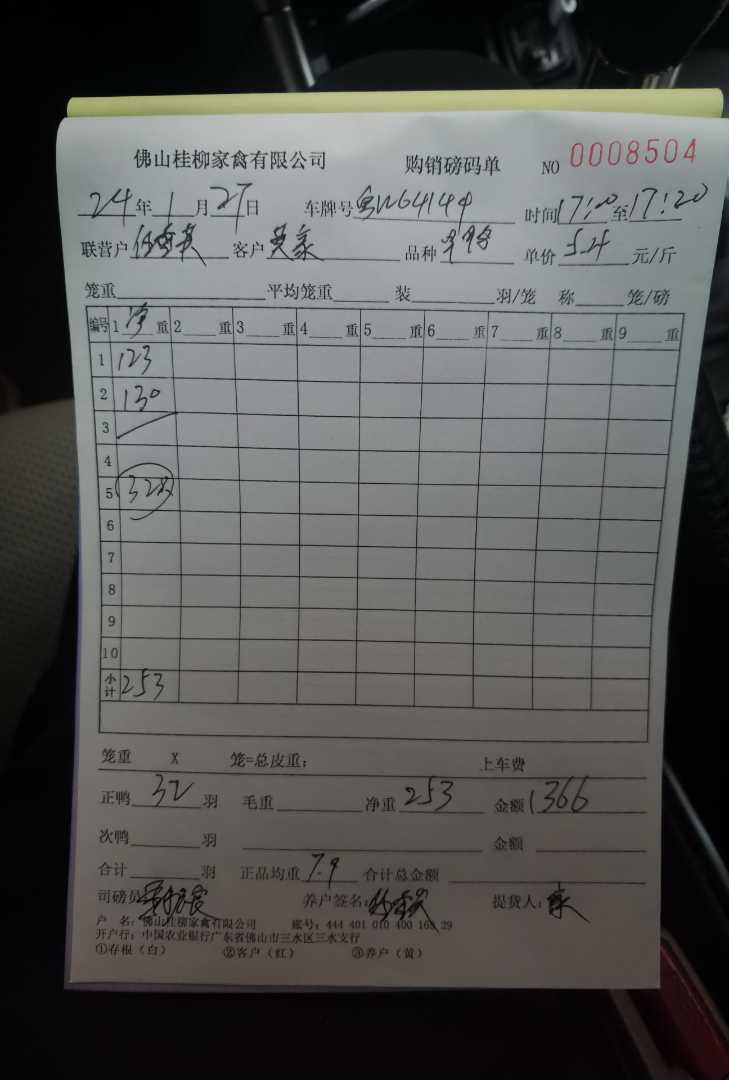 佛山桂柳家禽有限公司 购销磅码单 NO 0008504
24年1月27日 车牌号 粤W6414 时间17:00至17:20
联营户 客户 品种 单价5.4元/斤
笼重 平均笼重 装 羽/笼 称 笼/磅
编号 1净重 2 重 3 重 4 重 5 重 6 重 7 重 8 重 9 重
1 123
2 130
3
4
5 32只
6
7
8
9
10
小计 253
笼重 X 笼=总皮重: 上车费
正鸭32羽 毛重 净重253 金额1366
次鸭 羽 金额
合计 羽 正品均重7.9 合计总金额
司磅员 养户签名: 提货人:
户 名: 佛山桂柳家禽有限公司 账号: 444 401 010 400 16 29
开户行: 中国农业银行广东省佛山市三水区三水支行
①存根(白) ②客户(红) ③养户(黄)